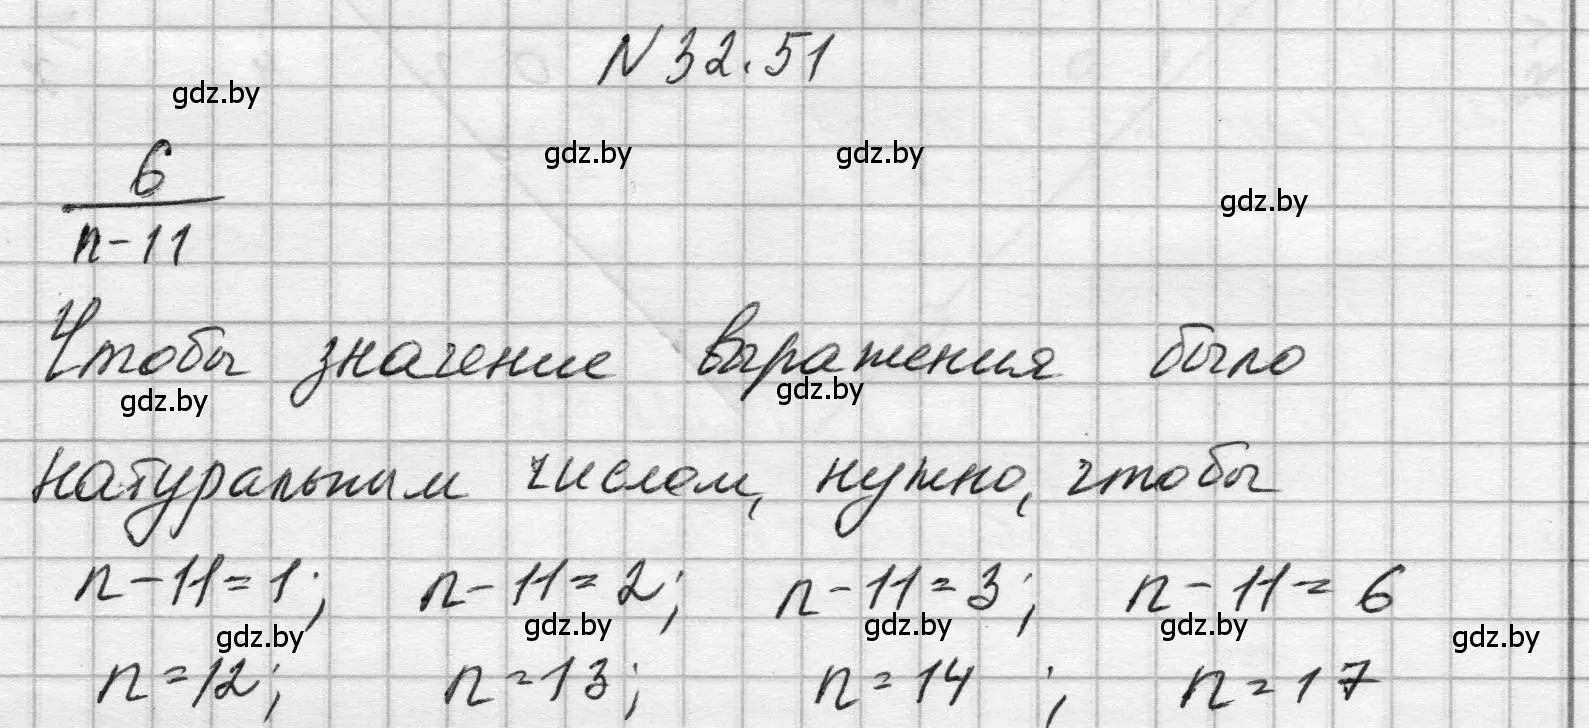 N 32.51
gdz.by
gdz.by gdz.by
6
gdz.by
n-11
Чтобы значение выражения было
gdz.by gdz.by
натуральным числом, нужно, чтобы
n-11=1; n-11=2; n-11=3; n-11=6
gdz.by gdz.by gdz.by gdz.by gdz.by
n=12; n=13; n=14; n=17